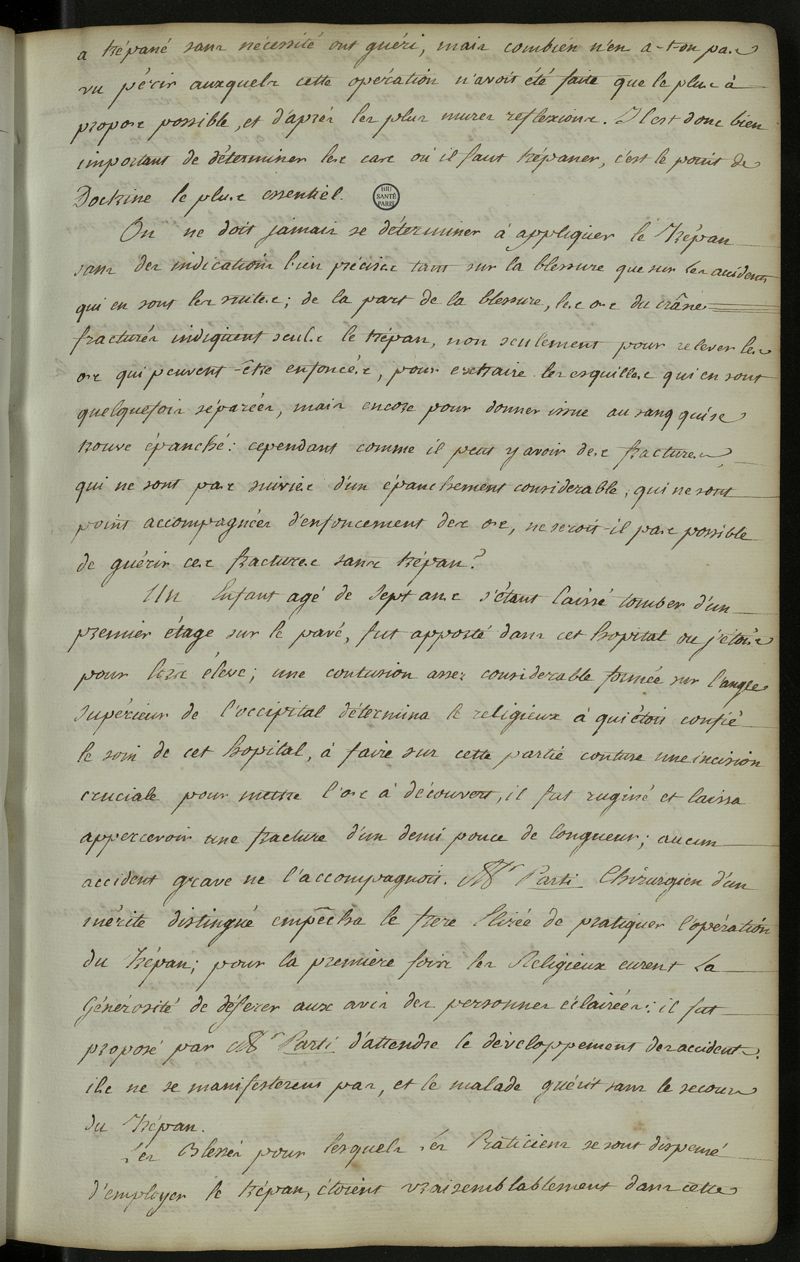 a trépané sans nécessité ont guéri, mais combien n'en a-t-on pas
vu périr auxquels cette opération n'avoit été faite que le plus à
propos possible, et d'après les plus mures reflexions. Il est donc bien
important de déterminer les cas où il faut trépaner, c'est le point de
Doctrine le plus essentiel.
BIU
SANTÉ
PARIS
On ne doit jamais se déterminer à appliquer le Trépan
sans des indications bien précises tant sur la blessure que sur les accidents
qui en sont les suites; de la part de la blessure, les os du crâne
fracturés indiquent seuls le trépan, non seulement pour relever les
os qui peuvent être enfoncés, pour extraire les esquilles qui en sont
quelquefois séparées, mais encore pour donner issue au sang qui se
trouve épanché: cependant comme il peut y avoir des fractures
qui ne sont pas suivies d'un épanchement considerable, qui ne sont
point accompagnées d'enfoncement des os, ne seroit-il pas possible
de guérir ces fractures sans trépan?
Un Enfant agé de Sept ans s'étant laissé tomber d'un
premier étage sur le pavé, fut apporté dans cet hopital ou j'étois
pour lors éleve; une contusion assez considerable formée sur l'angle
Supérieur de l'occipital détermina le religieux à qui étoit confié
le soin de cet hopital, à faire sur cette partie contuse une incision
cruciale pour mettre l'os à découvert, il fut ruginé et laissa
appercevoir une fracture d'un demi pouce de longueur; aucun
accident grave ne l'accompagnoit. Mr Parti Chirurgien d'un
mérite distingué empêcha le frere Elisée de pratiquer l'opération
du Trépan; pour la première fois les Religieux eurent La
Générosité de déferer aux avis des personnes éclairées: il fut
proposé par Mr Parti d'attendre le développement des accidents.
ils ne se manifesterent pas, et le malade guérit sans le secours
du Trépan.
Les Blessés pour lesquels les Praticiens se sont dispensé
d'employer le trépan, étoient vraisemblablement dans cette